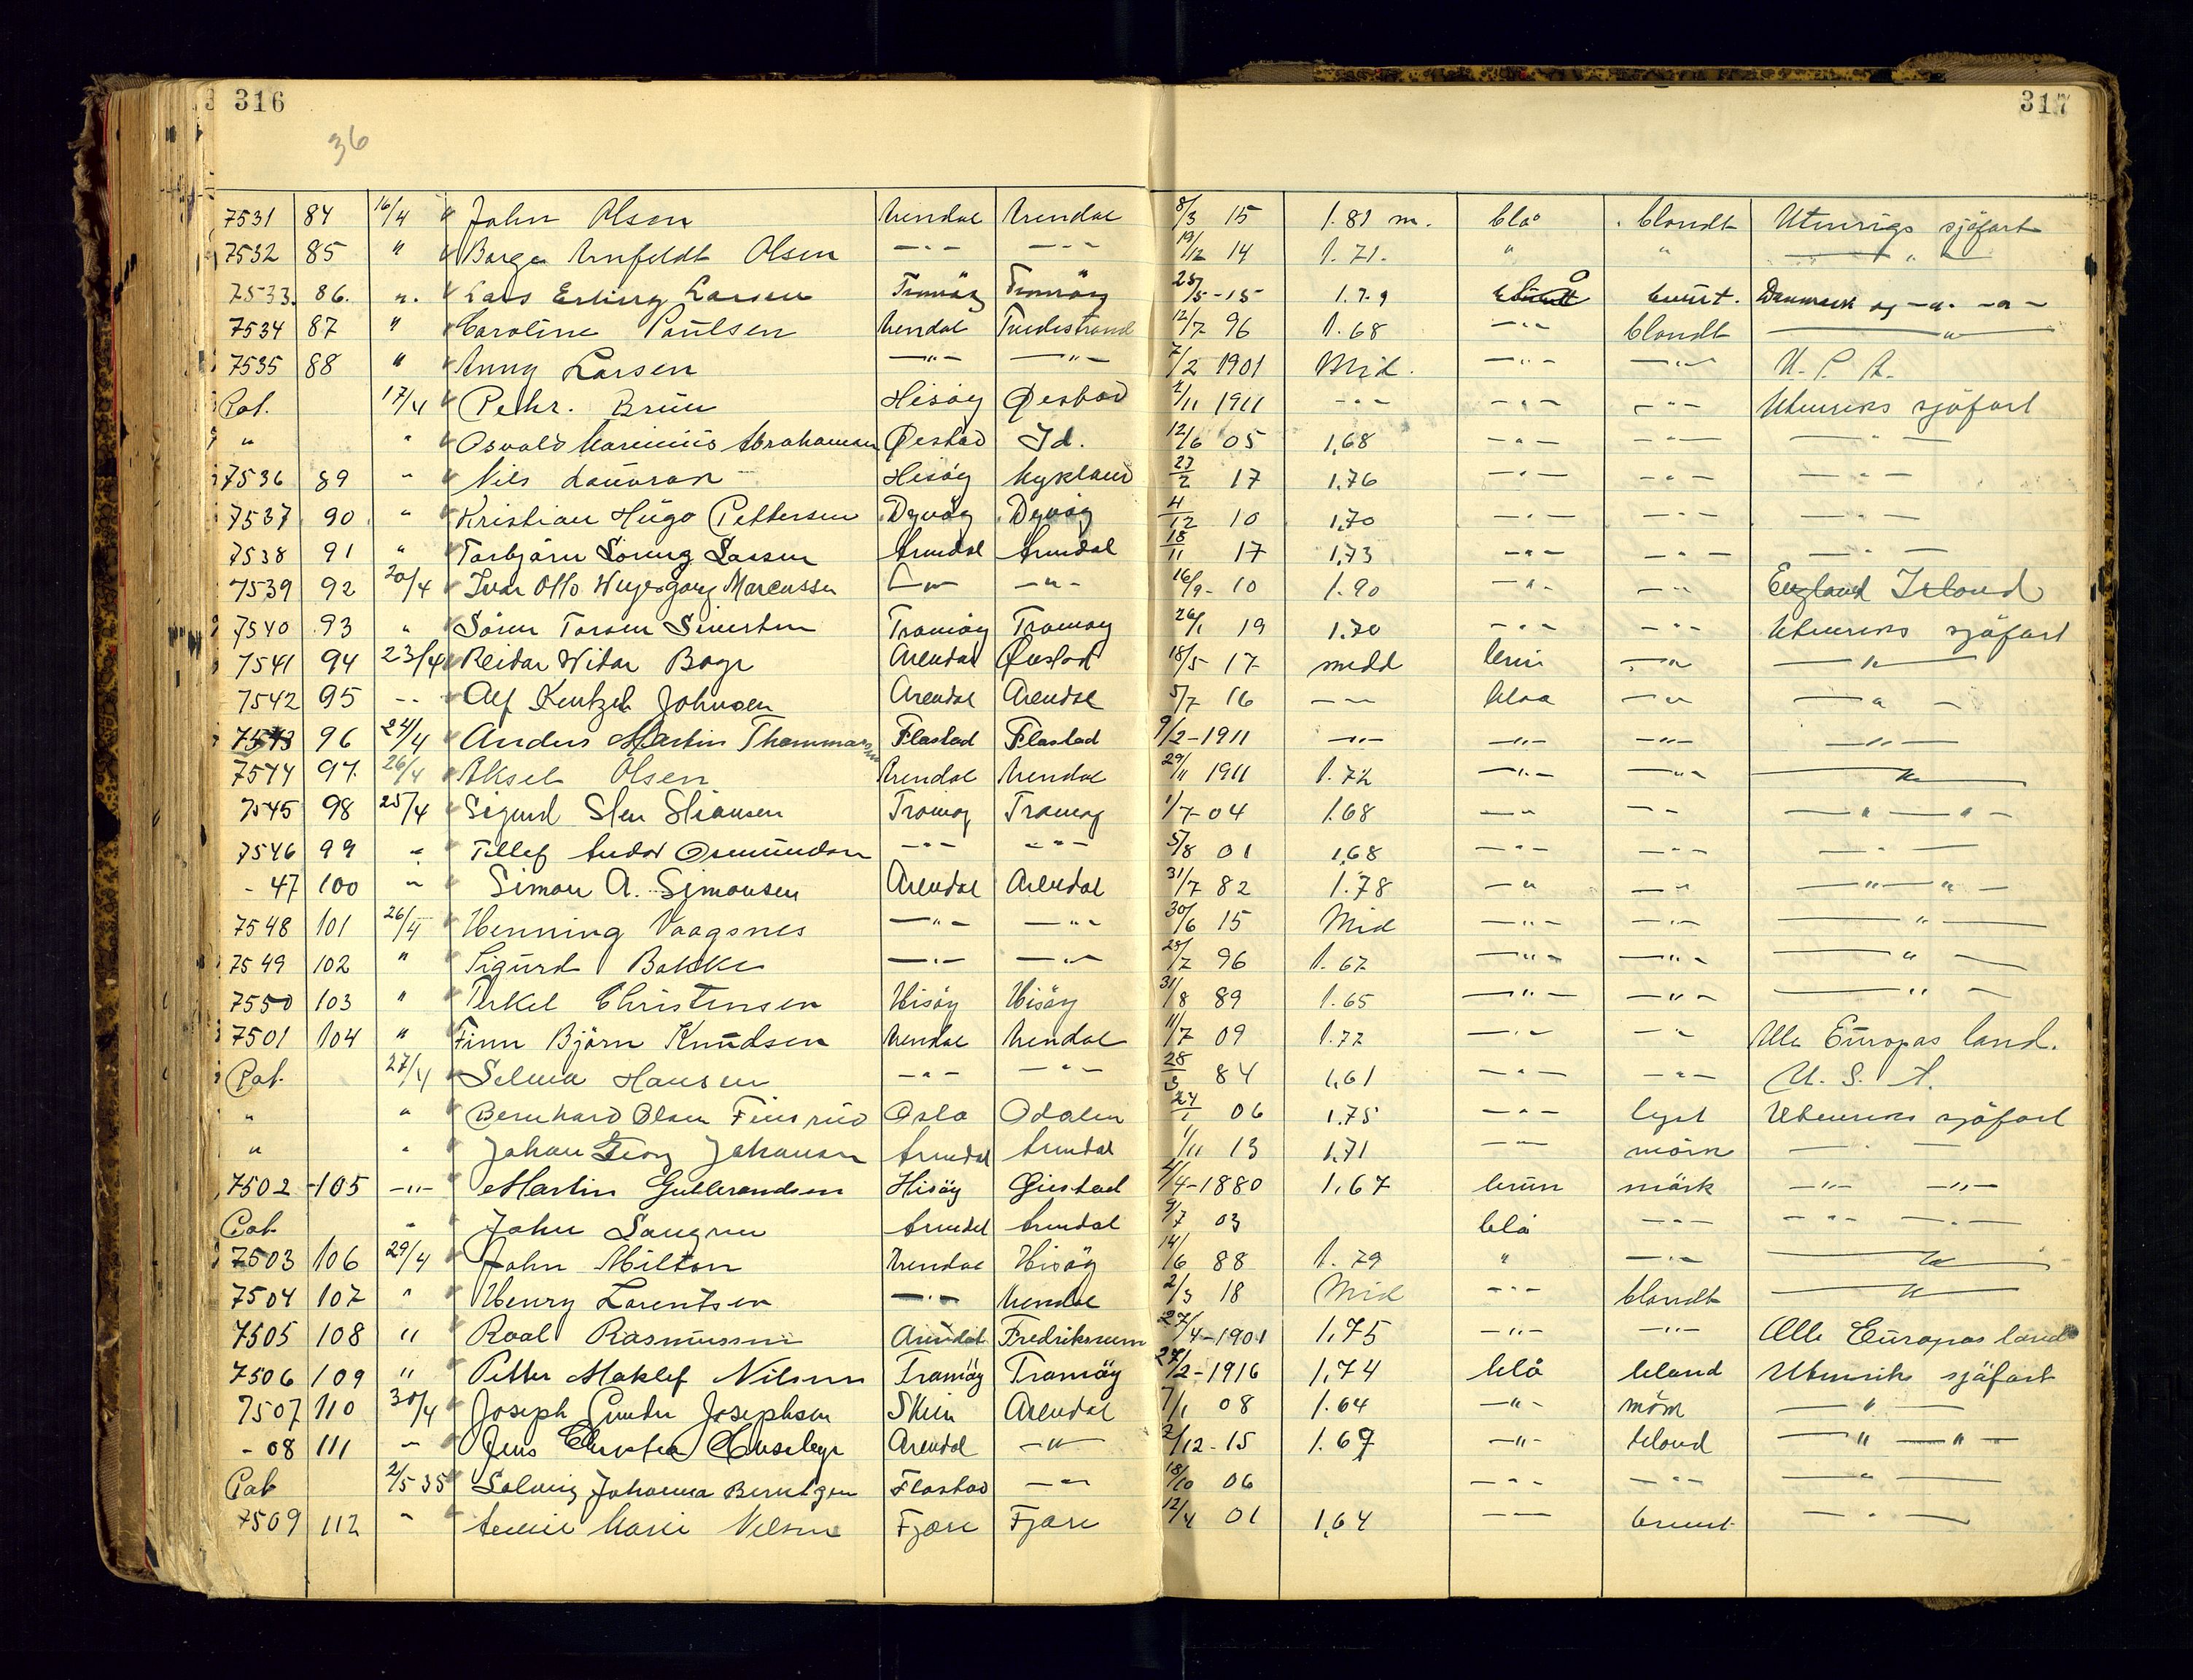 316
317
36
7531 84 16/4 " John Olsen Arendal Arendal 8/3 15 1.81 m. blå blondt Utenrigs sjöfart
7532 85 " " Borge Arnfeldt Olsen —"— —"— 19/12 14 1.71. " " —"—
7533. 86. ". " Lars Erling Larsen Tromöy Tromöy 25/5-15 1.79 blå brunt. Danmark og —"— —"—
7534 87 " " Caroline Paulsen Arendal Tvedestrand 12/7 96 1.68 —"— blondt —"—
7535 88 " " Anny Larsen —"— —"— 7/2 1901 Mid. —"— —"— U.S.A.
Pat. 17/4 " Pehr. Bruu Hisöy Øiestad 2/11 1911 —"— —"— —"— Utenriks sjöfart
" " " Osvald Marinius Abrahamsen Øiestad Id. 12/6 05 1,68 —"— —"— —"—
7536 89 " " Nils Hisöy Mykland 27/2 17 1,76 —"— —"— —"—
7537 90 " " Kristian Hugo Pettersen Dyvåg Dyvåg 4/12 10 1,70 —"— —"— —"—
7538 91 " " Torbjörn Lassen Arendal Arendal 18/11 17 1,73 —"— —"— —"—
7539 92 20/4 " Ivar Otto Marcussen —"— —"— 16/9-10 1.90 —"— —"— England Irland
7540 93 " " Sören Tarsen Sivertsen Tromöy Tromöy 26/1 19 1.70 —"— —"— Utenriks sjöfart
7541 94 23/4 " Reidar Vidar Boye Arendal Øiestad 18/5 17 midd brun —"— —"—
7542 95 -- " Alf Kentzel Johnsen Arendal Arendal 5/7 16 —"— blaa —"— —"—
7543 96 24/4 " Anders Martin Thommassen Flastad Flastad 9/2-1911 —"— —"— —"— —"—
7544 97. 26/4 " Aksel Olsen Arendal Arendal 29/11 1911 1.72 —"— —"— —"—
7545 98 25/4 " Sigurd Sten Stiansen Tromöy Tromöy 1/7-04 1.68 —"— —"— —"— —"—
7546 99 " " Tellef Andor Osmundsen —"— —"— 5/8 01 1,68 —"— —"— —"—
- 47 100 " " Simon A. Simonsen Arendal Arendal 31/7 82 1.78 —"— —"— —"—"—
7548 101 26/4 " Henning Vaagsnes —"— —"— 30/6 15 Mid —"— —"— —"—
7549 102 " " Sigurd Bakke —"— —"— 25/7 96 1.67 —"— —"— —"—
7550 103 " " Terkel Christensen Hisöy Hisöy 31/8 89 1.65 —"— —"— —"—
7501 104 " " Finn Björn Knudsen Arendal Arendal 11/7 09 1.72 —"— —"— Alle Europas land.
Pat. 27/4 " Selma Hansen —"— —"— 28/3 84 1,61 —"— —"— U.S.A.
" " " Bernhard Olsen Finsrud Oslo Odalen 24/1 06 1.75 —"— lyst Utenriks sjöfart
" " " Johan Georg Johansen Arendal Arendal 1/11 13 1,71 —"— mörk —"—
7502 -105 —"— " Martin Gulbrandsen Hisöy Øiestad 4/4-1880 1,67 brun mörk —"— —"—
Pat. " " John Langren Arendal Arendal 9/7 03 blå —"— —"— —"—
7503 106 29/4 " John Milton Arendal Hisöy 14/6 88 1.79 " —"— —"—
7504 107 " " Henry Lorentsen —"— Arendal 2/3 18 Mid —"— blondt —"—
7505 108 " " Roal Rasmussen Arendal 27/4-1901 1,75 —"— —"— Alle Europas land
7506 109 " " Petter Maklef Nilsen Tromöy Tromöy 27/2-1916 1,74 blå blond Utenriks sjöfart
7507 110 30/4 " Joseph Gunder Josephsen Skien Arendal 7/1 08 1.64 —"— mörk —"—
- 08 111 " " Jens Arendal —"— 2/12-15 1.67 —"— blond —"—"—
Pat 2/5 35 " Solveig Johanna Berntzen Flastad —"— 18/10 06 —"— —"— —"—
7509 112 " " Marie Nilsen Fjære Fjære 12/4 01 1,64 —"— brunt —"—